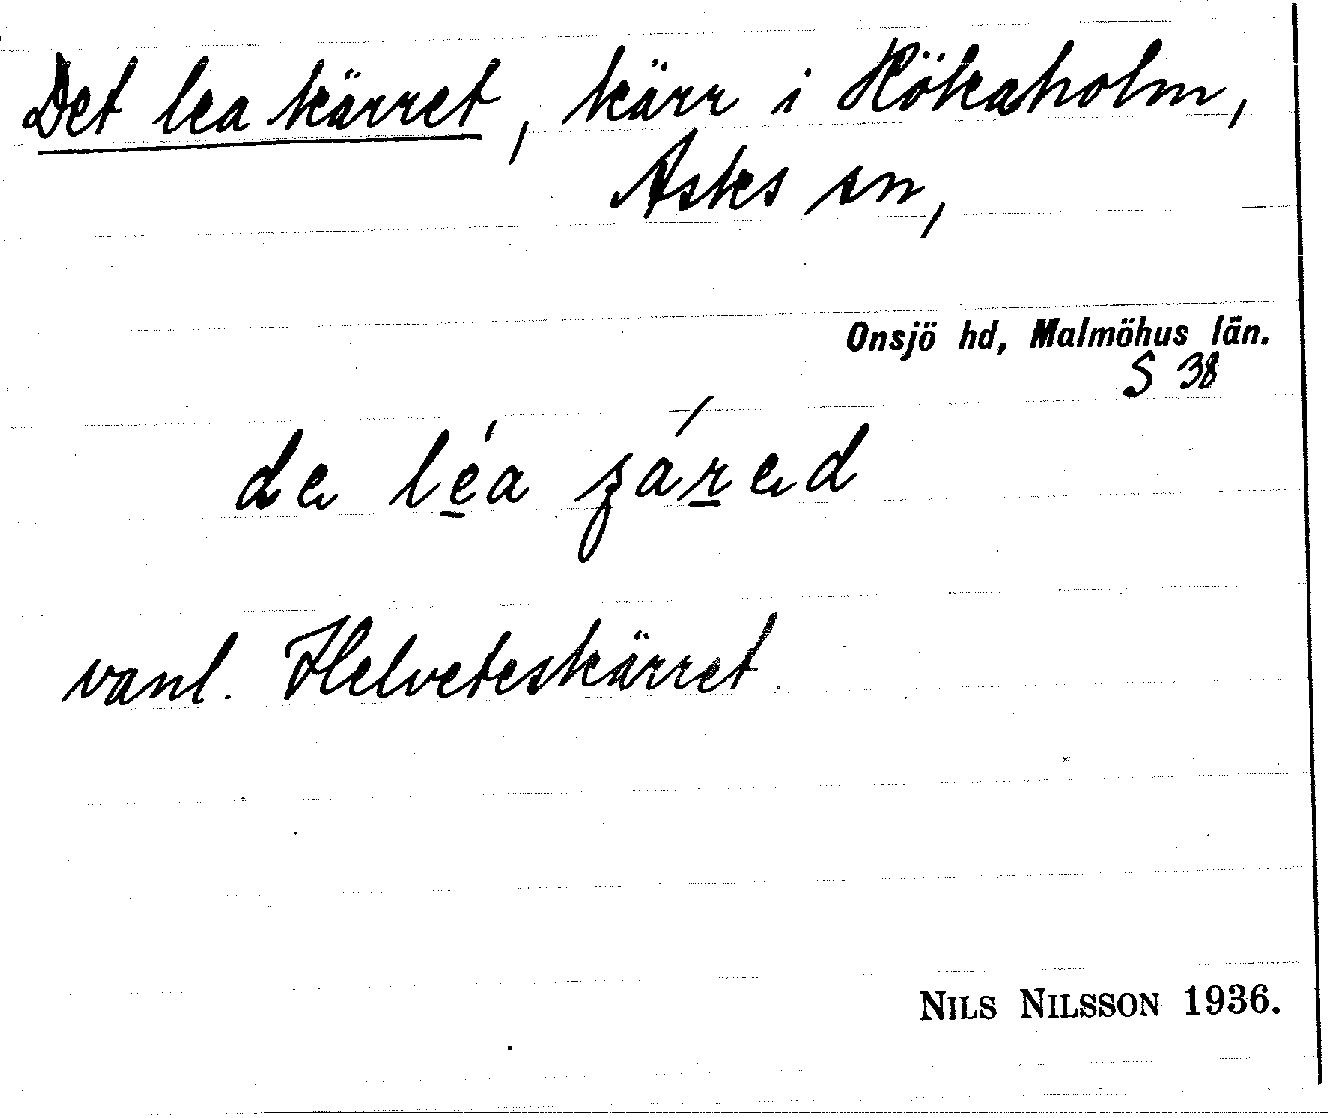 Det lea kärret, kärr i Hökaholm,
Asks sn,
Onsjö hd, Malmöhus län.
S 38
de léa
vanl. Helveteskärret
NILS NILSSON 1936.